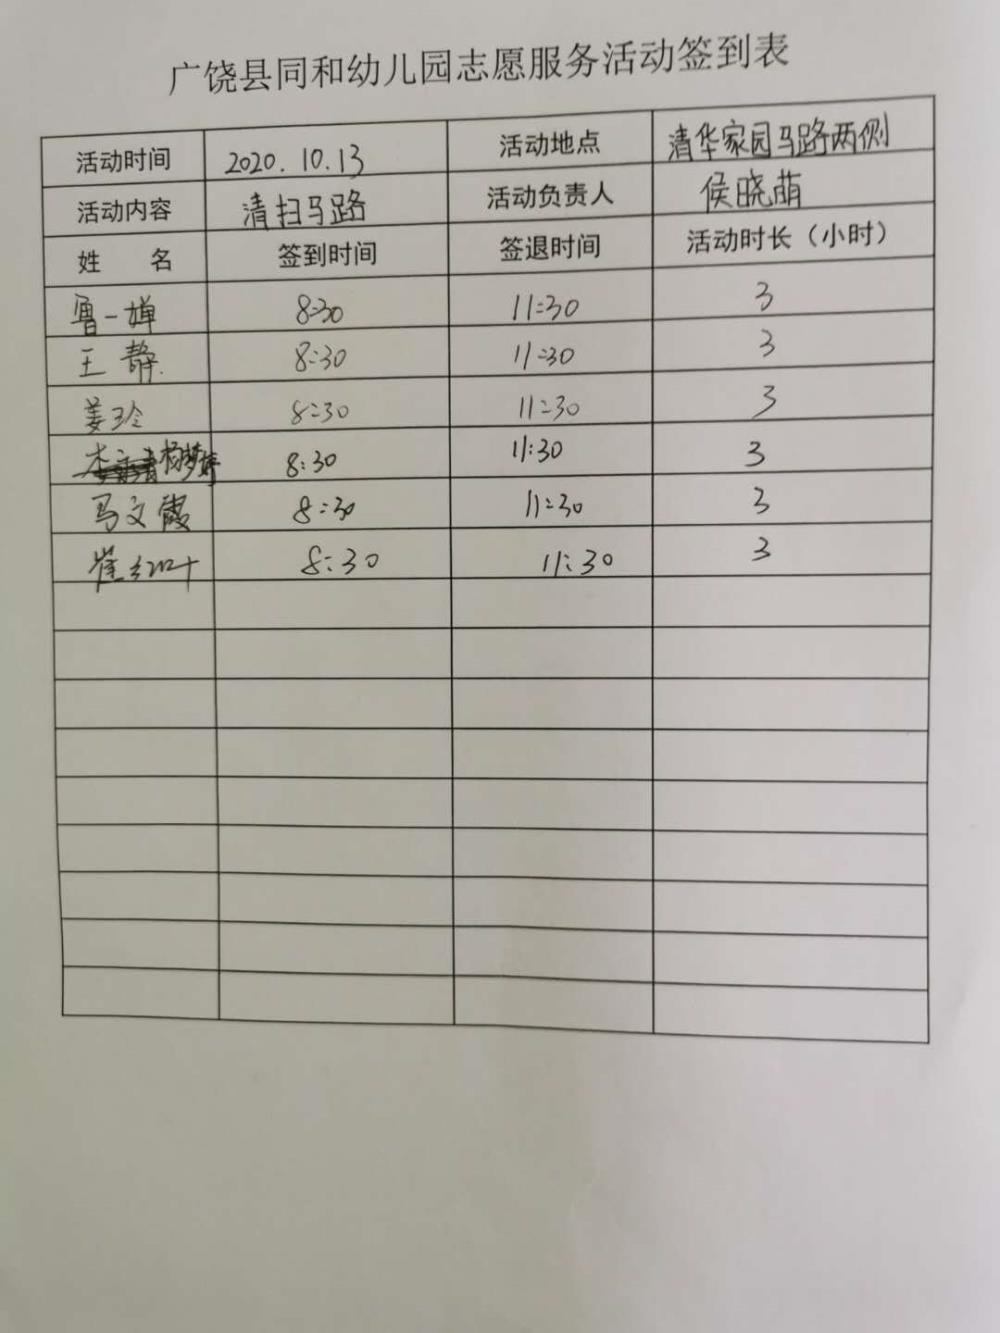 广饶县同和幼儿园志愿服务活动签到表
活动时间 2020.10.13 活动地点 清华家园马路两侧
活动内容 清扫马路 活动负责人 侯晓萌
姓 名 签到时间 签退时间 活动时长（小时）
鲁一婵 8:30 11:30 3
王静 8:30 11:30 3
姜玲 8:30 11:30 3
杨梦婷 8:30 11:30 3
马文霞 8:30 11:30 3
崔红叶 8:30 11:30 3